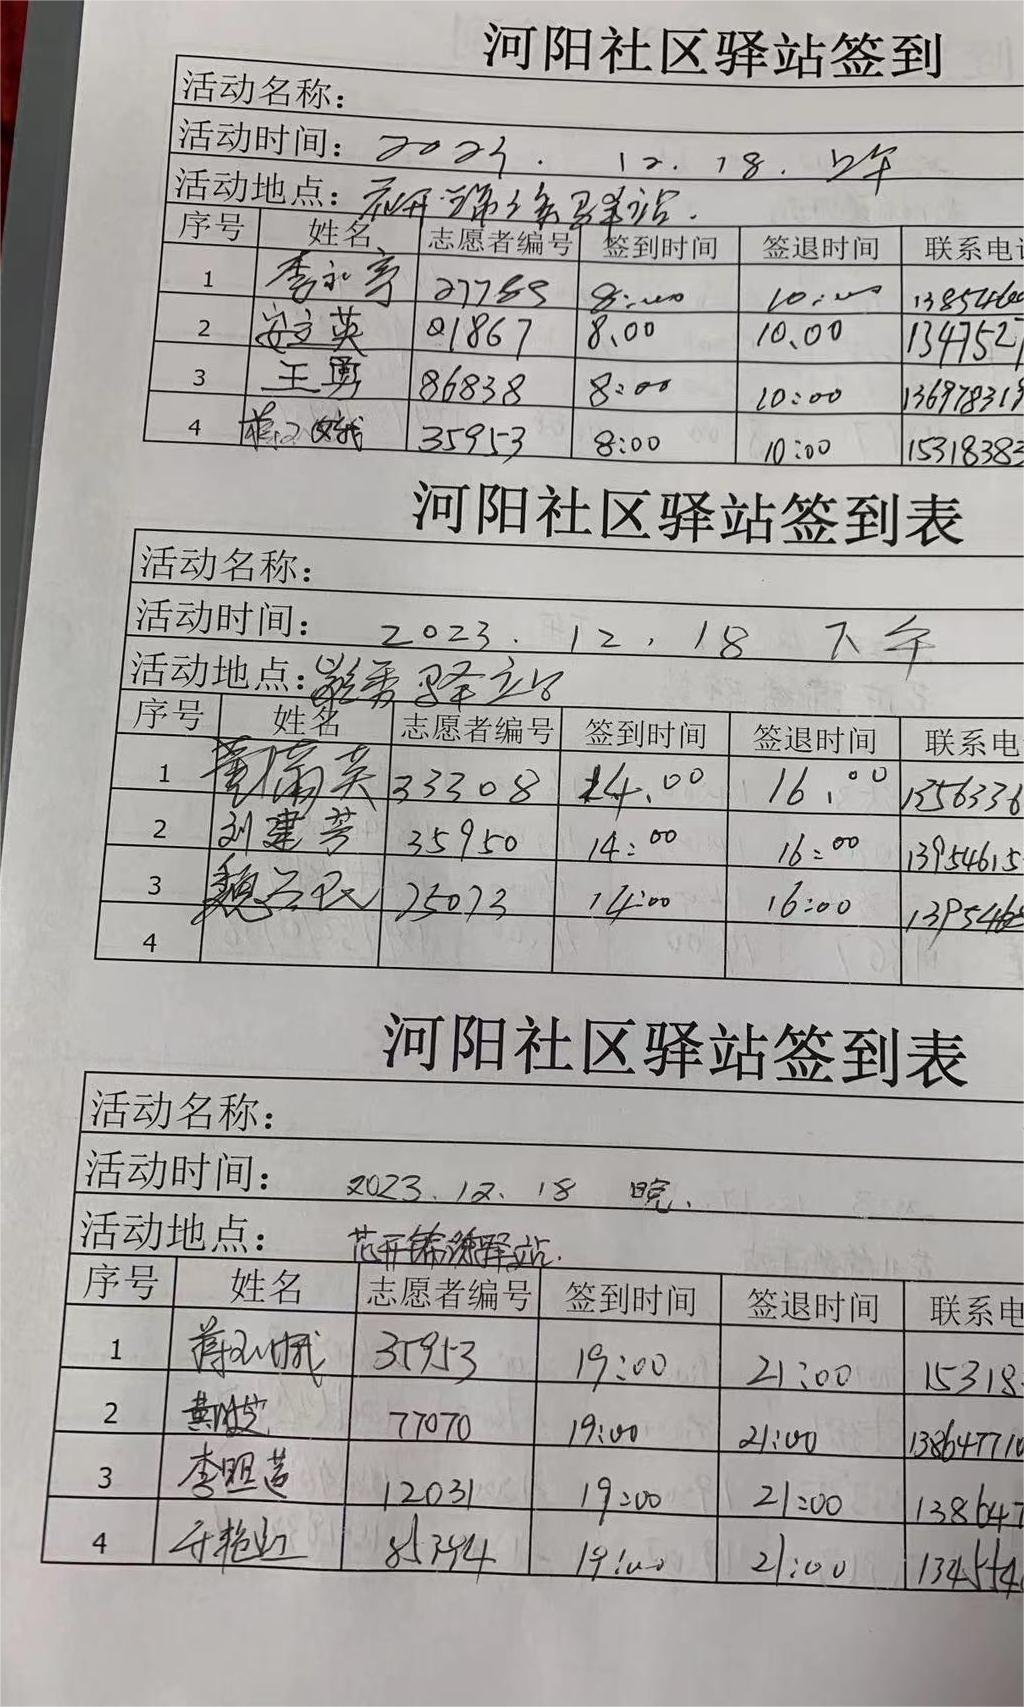 河阳社区驿站签到
活动名称：
活动时间： 2023. 12.18. 上午
活动地点： 驿站.
序号 姓名 志愿者编号 签到时间 签退时间 联系电
1 李永亭 27789 8:00 10:00 1385460
2 安立英 01867 8.00 10.00 134752
3 王勇 86838 8:00 10:00 136978319
4 35953 8:00 10:00 15318383
河阳社区驿站签到表
活动名称：
活动时间： 2023.12.18 下午
活动地点： 驿站
序号 姓名 志愿者编号 签到时间 签退时间 联系电
1 33308 14.00 16.00 1356336
2 刘建芳 35950 14:00 16:00 13954615
3 魏 25073 14:00 16:00 1395468
4
河阳社区驿站签到表
活动名称：
活动时间： 2023.12.18 晚.
活动地点： 芯开锦绣驿站.
序号 姓名 志愿者编号 签到时间 签退时间 联系电
1 35953 19:00 21:00 15318
2 77070 19:00 21:00 138647710
3 12031 19:00 21:00 138647
4 85394 19:00 21:00 134554